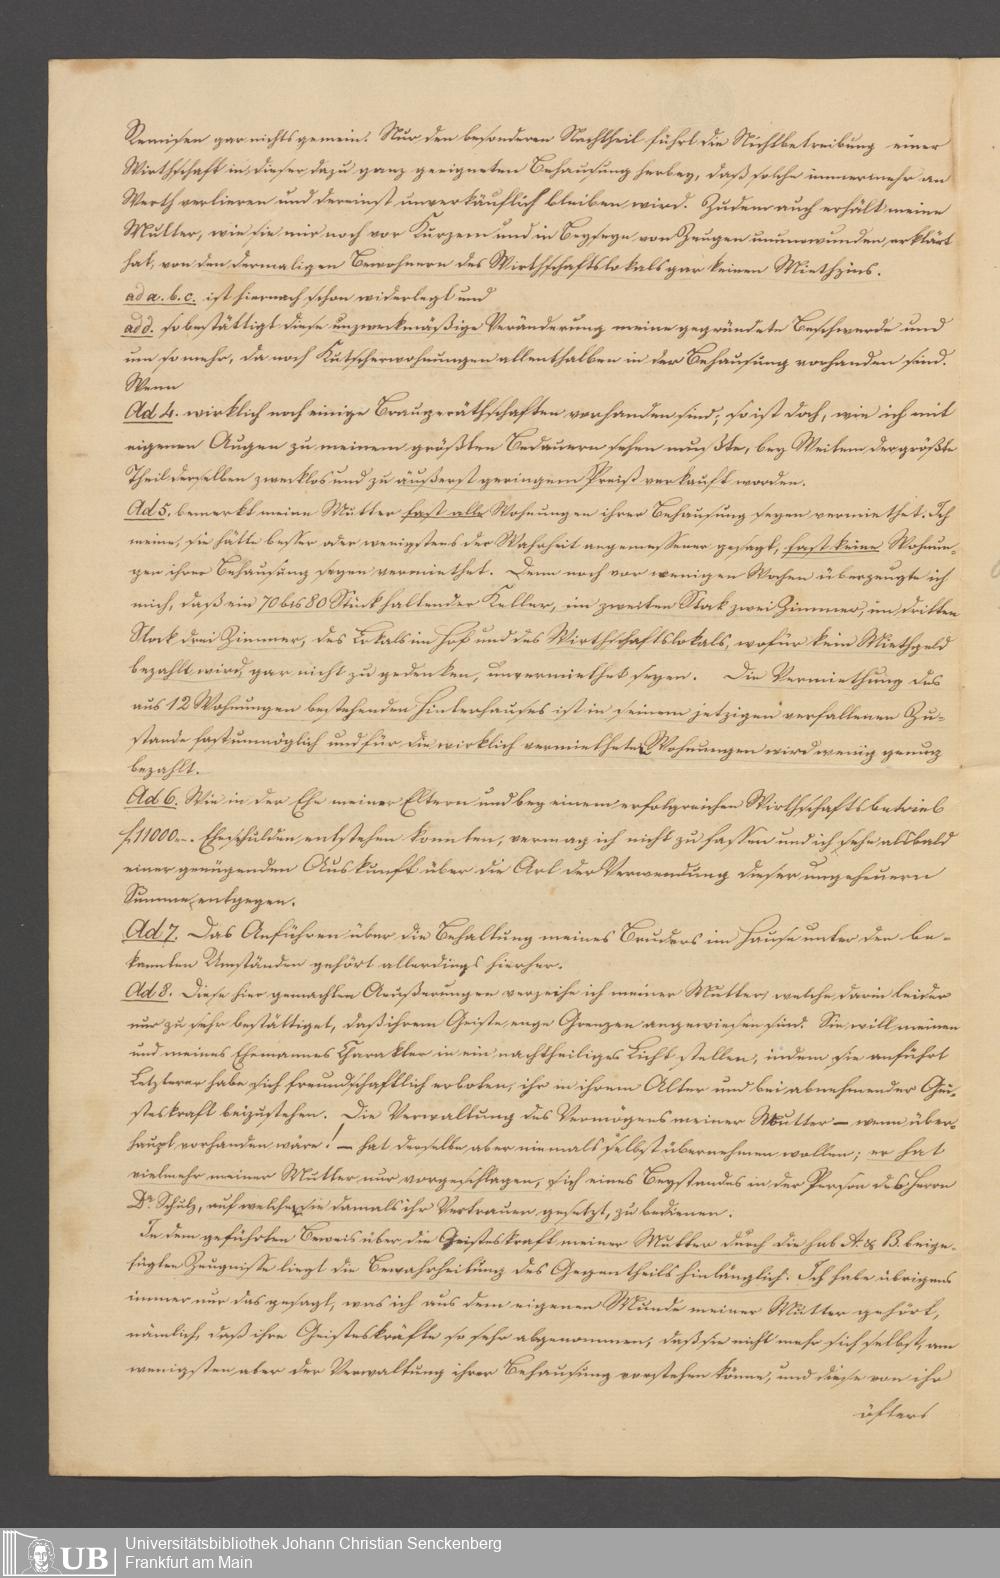 Remisen gar nichts gemein. Nur den besonderen Nachtheil führt die Nichtbetreibung einer
Wirthschaft in dieser dazu ganz geeigneten Behausung herbey, daß solche immermehr an
Werth verlieren und dereinst unverkäuflich bleiben wird. Zudem auch erhält meine
Mutter, wie sie mir noch vor Kurzem und in Beyseyn von Zeugen unumwunden erklärt
hat, von den dermaligen Bewohnern des Wirthschaftslokals gar keinen Miethzins.
ad a. b. c. ist hiernach schon widerlegt und
ad d. so bestättigt diese unzweckmäßige Veränderung meine gegründete Beschwerde und
um so mehr, da noch Kutscherwohnungen allenthalben in der Behausung vorhanden sind.
Wenn
Ad 4. wirklich noch einige Braugeräthschaften vorhanden sind, so ist doch, wie ich mit
eigenen Augen zu meinem größten Bedauern sehen mußte, bey Weitem der größte
Theil derselben zwecklos und zu äußerst geringem Preiß verkauft worden.
Ad 5. bemerkt meine Mutter fast alle Wohnungen ihrer Behausung seyen vermiethet. Ich
meine, sie hätte besser oder wenigstens der Wahrheit angemessener gesagt, fast keine Wohnun-
gen ihrer Behausung seyen vermiethet. Denn noch vor wenigen Wochen überzeugte ich
mich, daß ein 70 bis 80 Stück haltender Keller, im zweiten Stok zwei Zimmer, im dritten
Stock drei Zimmer, des Lokals im Hof und des Wirthschaftslokals, wofür kein Miethgeld
bezahlt wird, gar nicht zu gedenken, unvermiethet seyen. Die Vermiethung des
aus 12 Wohnungen bestehenden Hinterhauses ist in seinem jetzigen verfallenen Zu-
stande fast unmöglich und für die wirklich vermietheten Wohnungen wird wenig genug
bezahlt.
Ad 6. Wie in der Ehe meiner Eltern und bey einem erfolgreichen Wirthschaftsbetrieb
f 11000.-. Eheschulden entstehen konnten, vermag ich nicht zu fassen und ich sehe alsbald
einer genügenden Auskunft über die Art der Verwendung dieser ungeheuern
Summe entgegen.
Ad 7. Das Anführen über die Behaltung meines Bruders im Hause unter den be-
kannten Umständen gehört allerdings hierher.
Ad 8. Diese hier gemachten Aeußerungen verzeihe ich meiner Mutter, welche darin leider
nur zu sehr bestättiget, daß ihrem Geiste enge Grenzen angewiesen sind. Sie will meinen
und meines Ehemannes Charakter in ein nachtheiliges Licht stellen, indem sie anführt
Letzterer habe sich freundschaftlich erboten, ihr in ihrem Alter und bei abnehmender Gei-
steskraft beizustehen. Die Verwaltung des Vermögens meiner Mutter – wenn über-
haupt vorhanden wäre! – hat derselbe aber niemals selbst übernehmen wollen; er hat
vielmehr meiner Mutter nur vorgeschlagen, sich eines Beystandes in der Person des Herrn
Dr Schulz, auf welchen sie damals ihr Vertrauen gesetzt, zu bedienen.
In dem geführten Beweis über die Geisteskraft meiner Mutter durch die sub A. & B. beige-
fügten Zeugnisse liegt die Bewahrheitung des Gegentheils hinlänglich. Ich habe übrigens
immer nur das gesagt, was ich aus dem eigenen Munde meiner Mutter gehört,
nämlich, daß ihre Geisteskräfte so sehr abgenommen, daß sie nicht mehr sich selbst, am
wenigsten aber der Verwaltung ihrer Behausung vorstehen könne, und diese von ihr
öfters
UB
Universitätsbibliothek Johann Christian Senckenberg
Frankfurt am Main